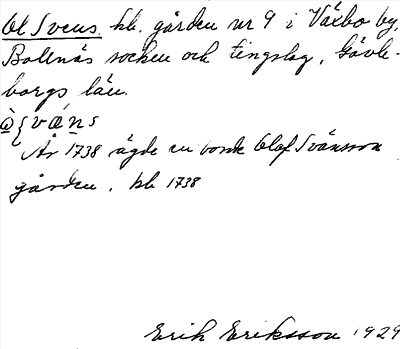 Ol Svens, kb. gården nr 9 i Växbo by,
Bollnäs socken och tingslag, Gävle-
borgs län.
År 1738 ägde en bonde Olof Svänsson
gården. kb 1738
Erik Eriksson 1929